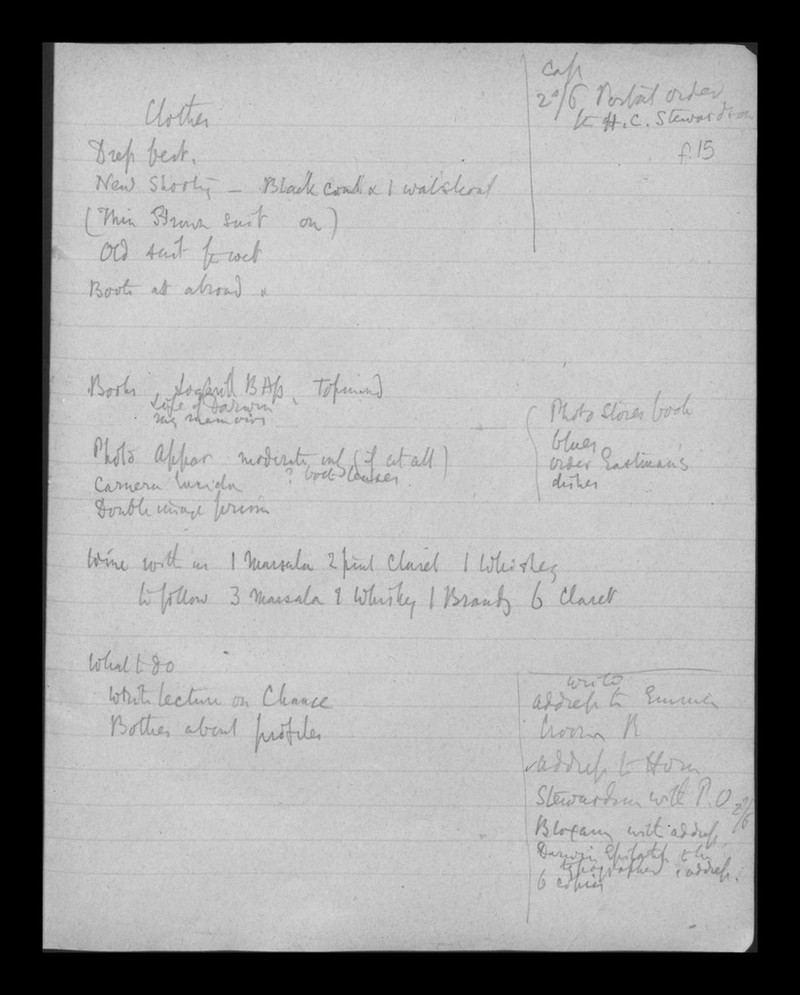 cap
2s/6 Postal order
to H.C. Stewardson
f.15
Clothes
Dress best.
New Shooting — Black coat & 1 waistcoat
(Thin Brown suit on)
Old suit for wet
Boots as abroad
Books BAss, Topinard
Life of Darwin
my memoirs
Photo Appar moderate only (if at all)
Camera lucida ? book
Double image prism
Photo Stores book
blues
order Eastman's
dishes
Wine with us 1 Marsala 2 pint Claret 1 Whiskey
to follow 3 Marsala 2 Whisky 1 Brandy 6 Claret
What to do
Write lecture on Chance
Bother about profiles
write
address to Emma
address to Horn
Stewardson with P.O 2/6
Bloxam with address
Darwin
typographer & address.
6 copies